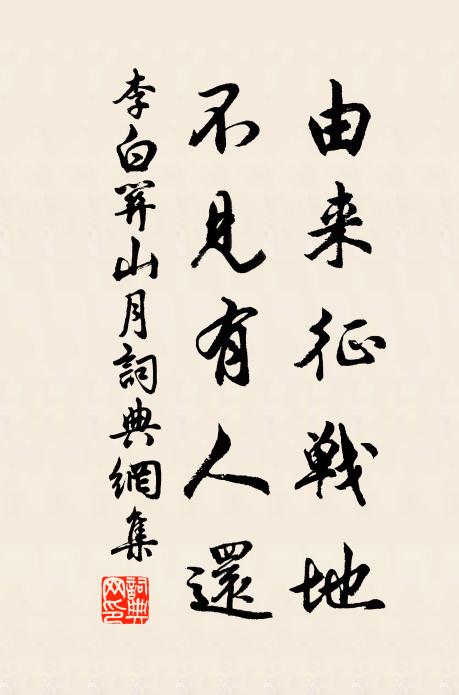 由来征戰地
不見有人還
李白關山月詞典網集
詞典网印